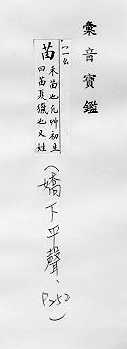 彙音寶鑑
苗 禾苗也凡艸初生
曰苗夏獵也又姓
(嬌下平聲、P252)